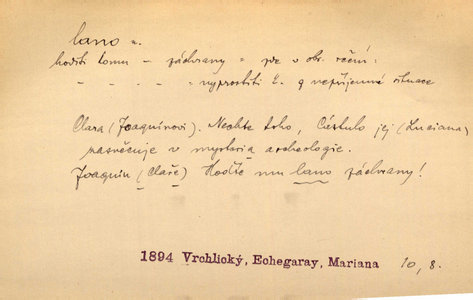 lano n.
hoditi komu – záchrany = jse v obr. rčení:
- - - - = vyprostiti č. z nepříjemné situace
Clara (Joaquínovi). Nechte toho, Cástulo jej (Luciana)
zasvěcuje v mysteria archeologie.
Joaquin (Claře) Hodíč mu lano záchrany!
1894 Vrchlický, Echegaray, Mariana 10, 8.